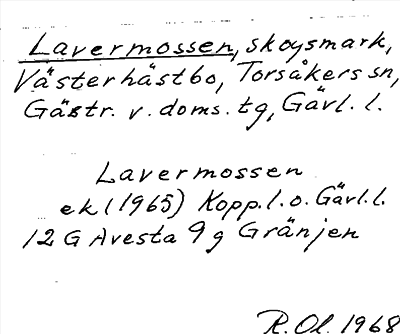 Lavermossen, skogsmark,
Västerhästbo, Torsåkers sn,
Gästr. v. doms. tg, Gävl. l.
Lavermossen
ek (1965) Kopp. l. o. Gävl. l.
12 G Avesta 9 g Gränjen
R. Ol. 1968